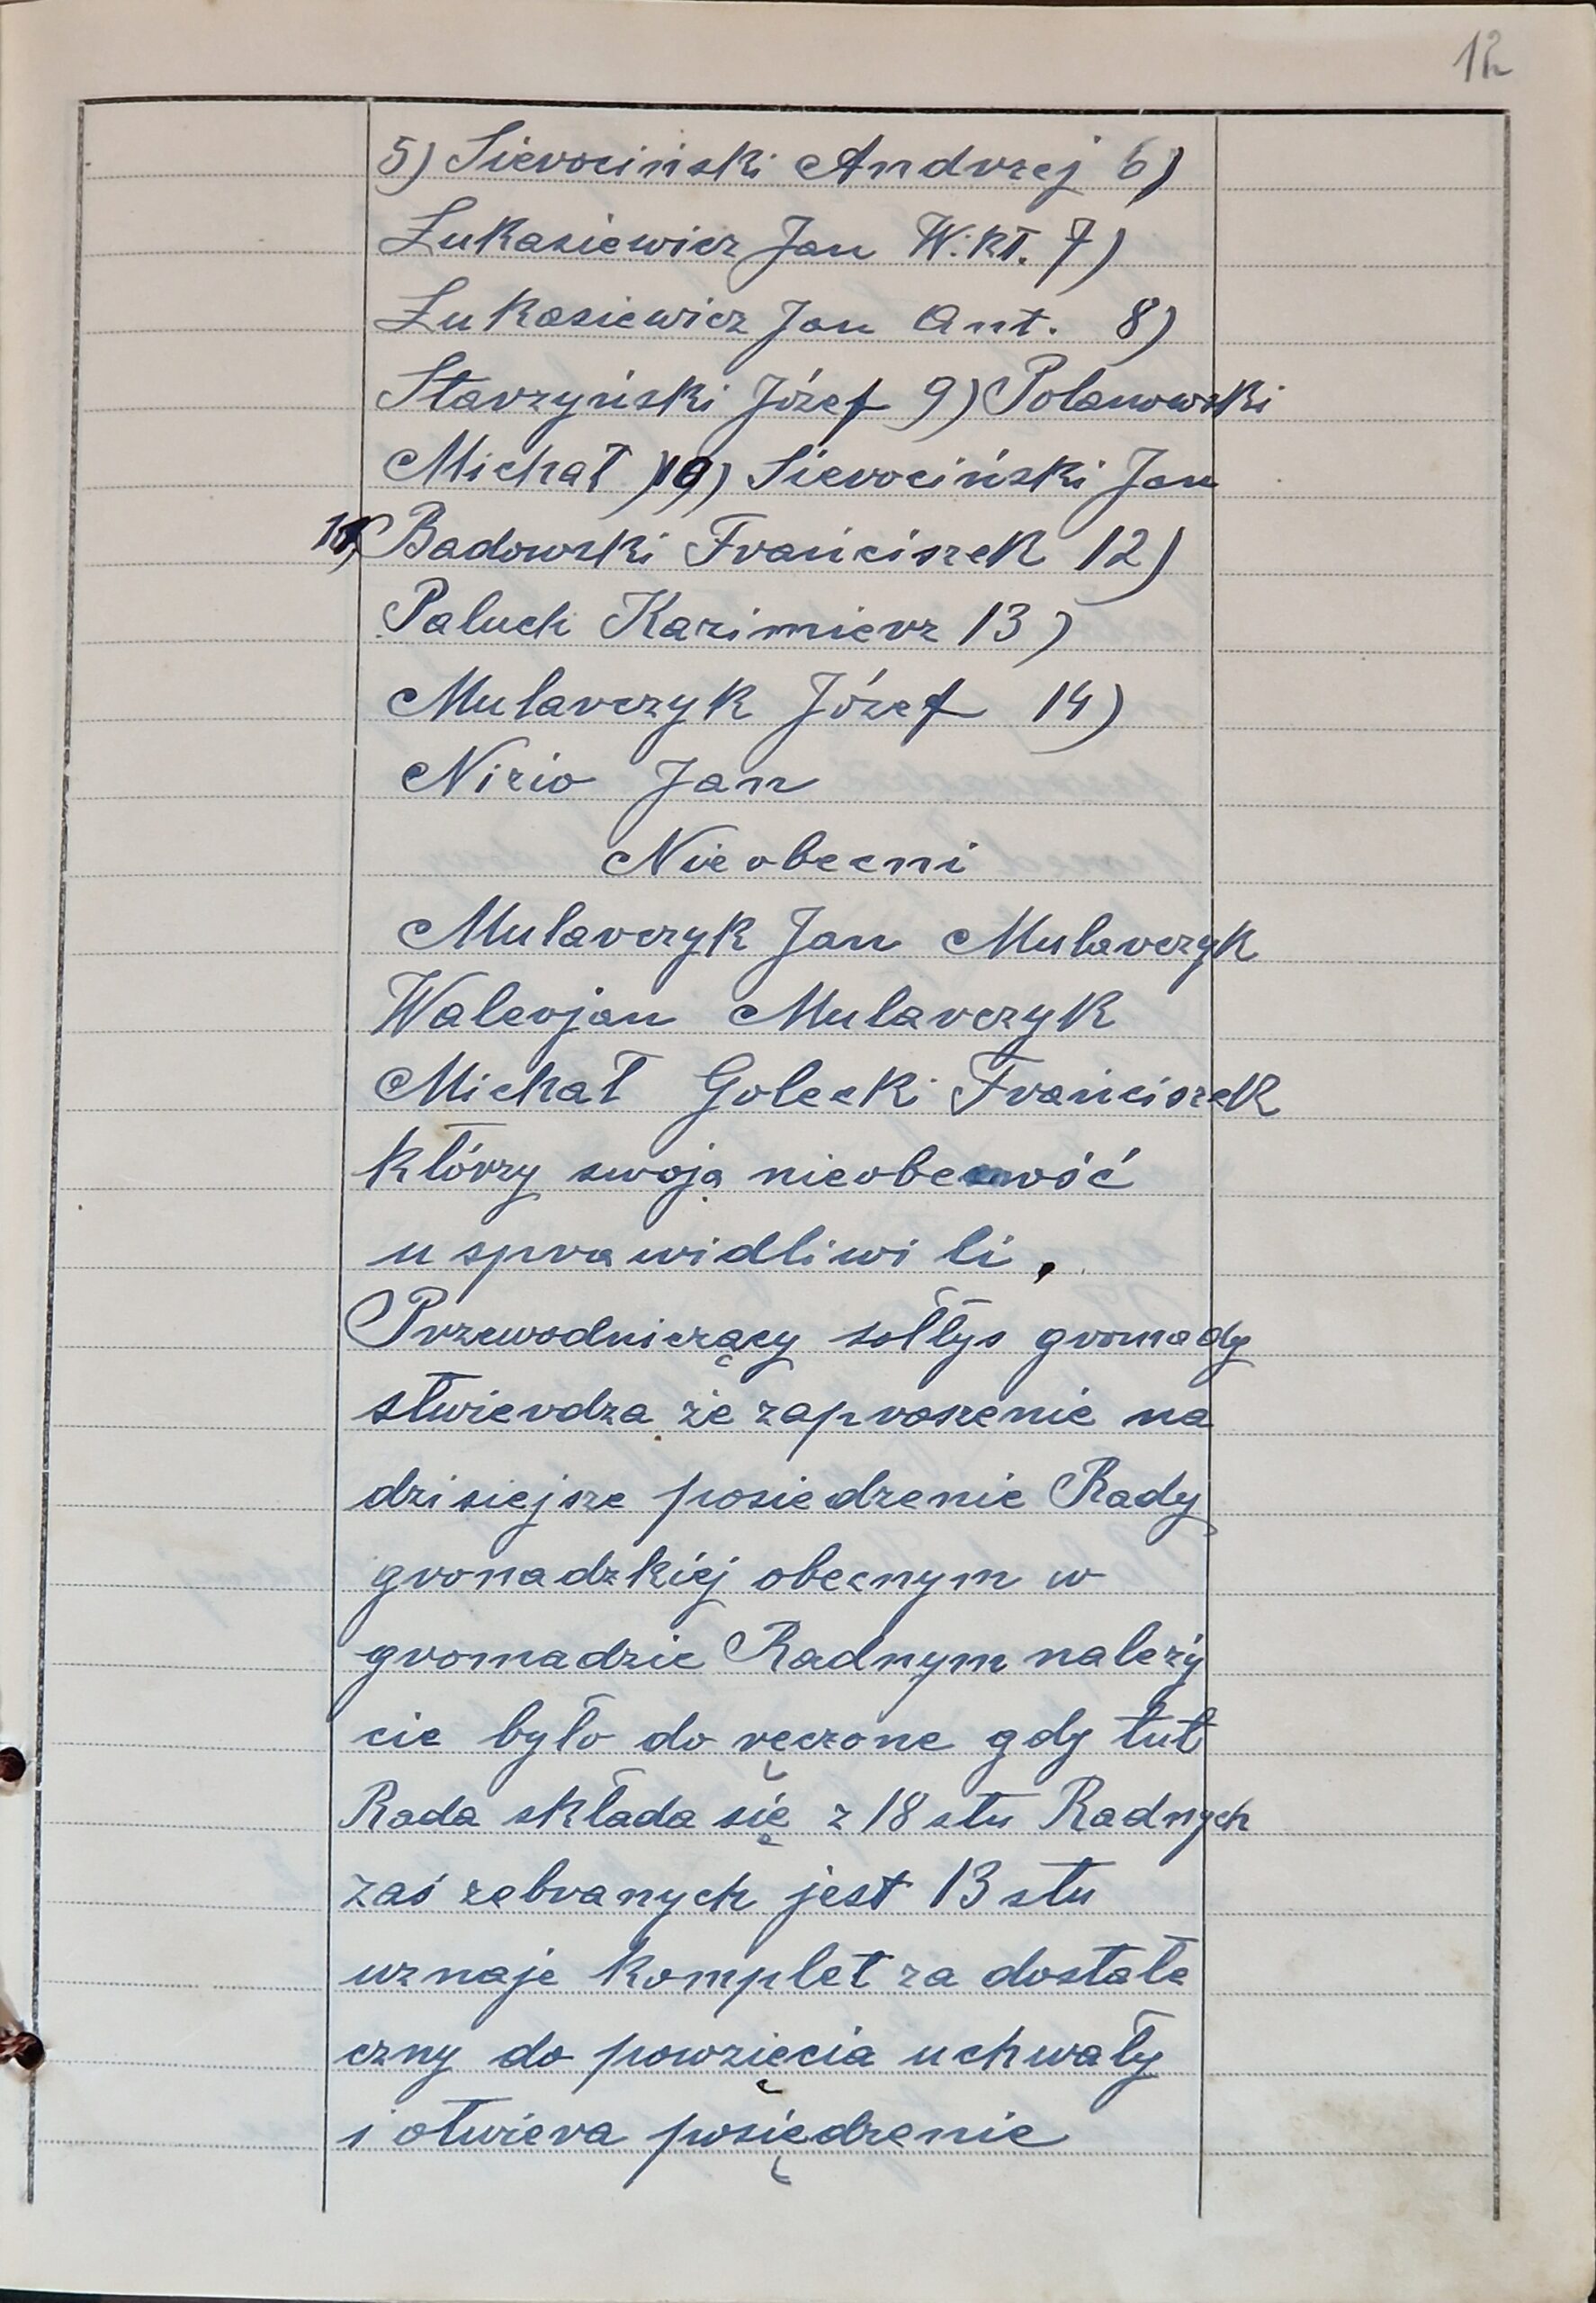 12
5) Sierociński Andrzej 6)
Łukasiewicz Jan W.kt. 7)
Łukasiewicz Jan Ant. 8)
Starzyński Józef 9) Polanowski
Michał 10) Sierociński Jan
11) Badowski Franciszek 12)
Paluch Kazimierz 13)
Mularczyk Józef 14)
Nizio Jan
Nieobecni
Mularczyk Jan Mularczyk
Walerjan Mularczyk
Michał Golecki Franciszek
którzy swoją nieobecność
usprawidliwili.
Przewodniczący sołtys gromady
stwierdza że zaproszenie na
dzisiejsze posiedzenie Rady
gronadzkiej obecnym w
gromadzie Radnym należy
cie było do ręczone gdy tut
Rada składa się z 18 stu Radnych
zaś zebranych jest 13 stu
uznaje komplet za dostate
czny do powzięcia uchwały
i otwiera posiędzenie